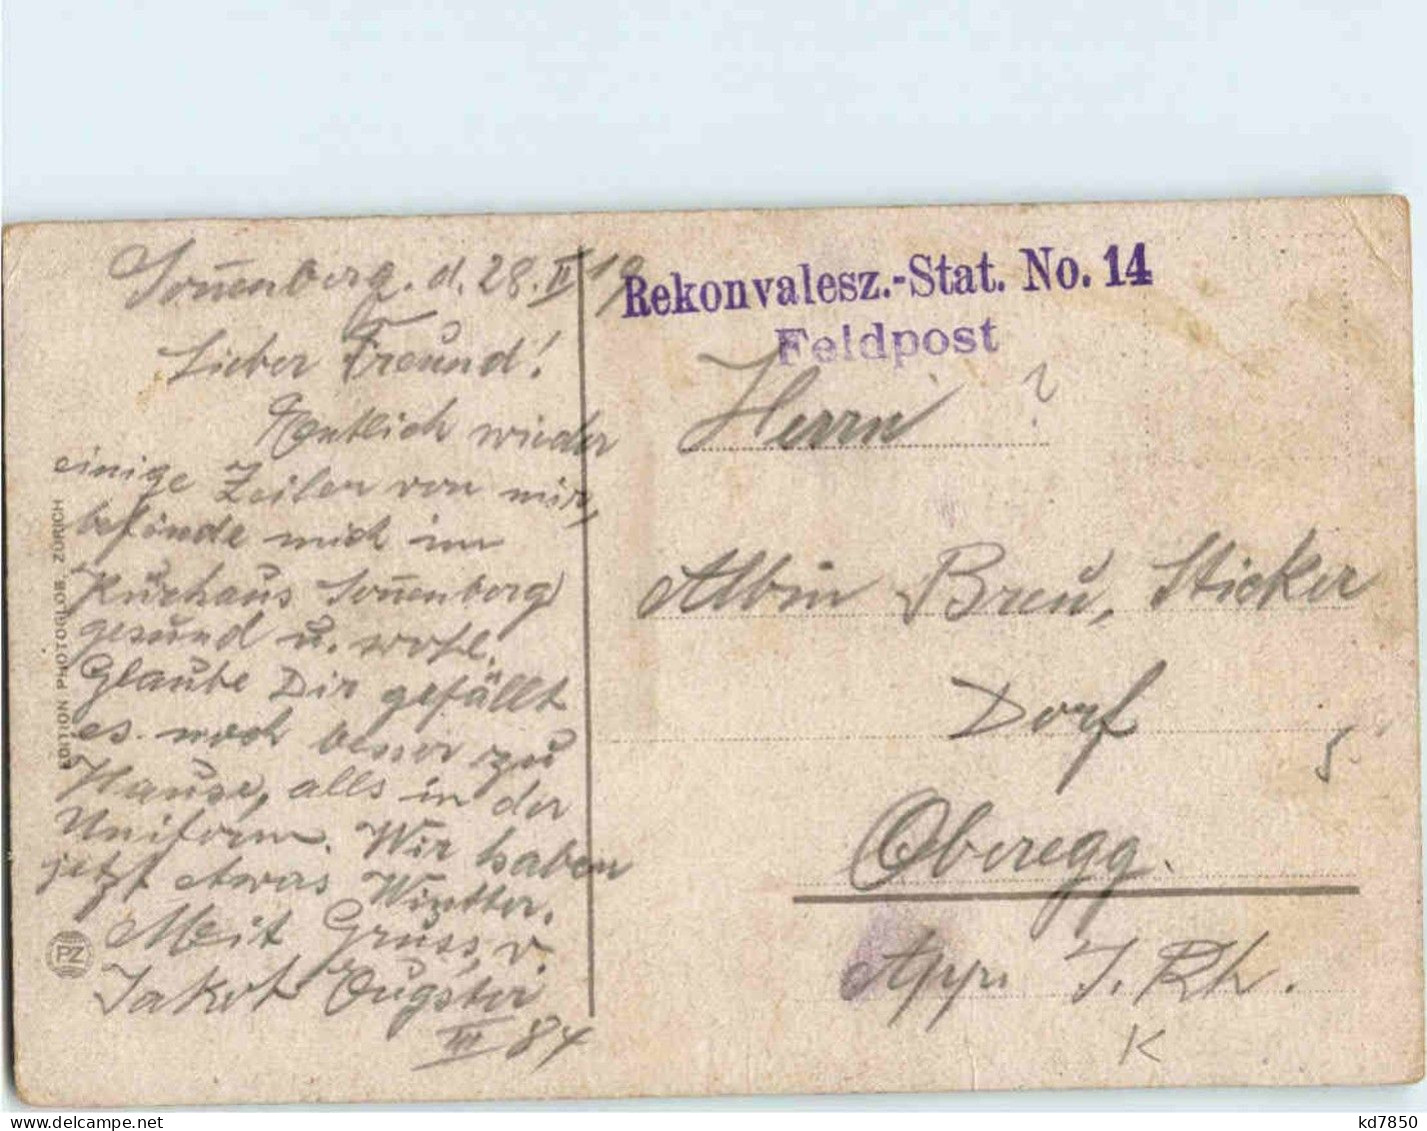 Sonnenberg. d. 28. II 19
Lieber Freund!
Entlich wieder
einige Zeilen von mir,
befinde mich im
Kurhaus Sonnenberg
gesund u. wohl.
Glaube Dir gefällt
es noch besser zu
Hause, alls in der
Uniform. Wir haben
jetzt etwas Wintter.
Mit Gruss, v.
Jakob Eugster
III 84
EDITION PHOTOGLOB. ZÜRICH
PZ
Rekonvalesz.-Stat. No. 14
Feldpost
Herrn
Albin Breu, Sticker
Dorf
Oberegg.
App. I. Rh.
K
delcampe.net
kd7850